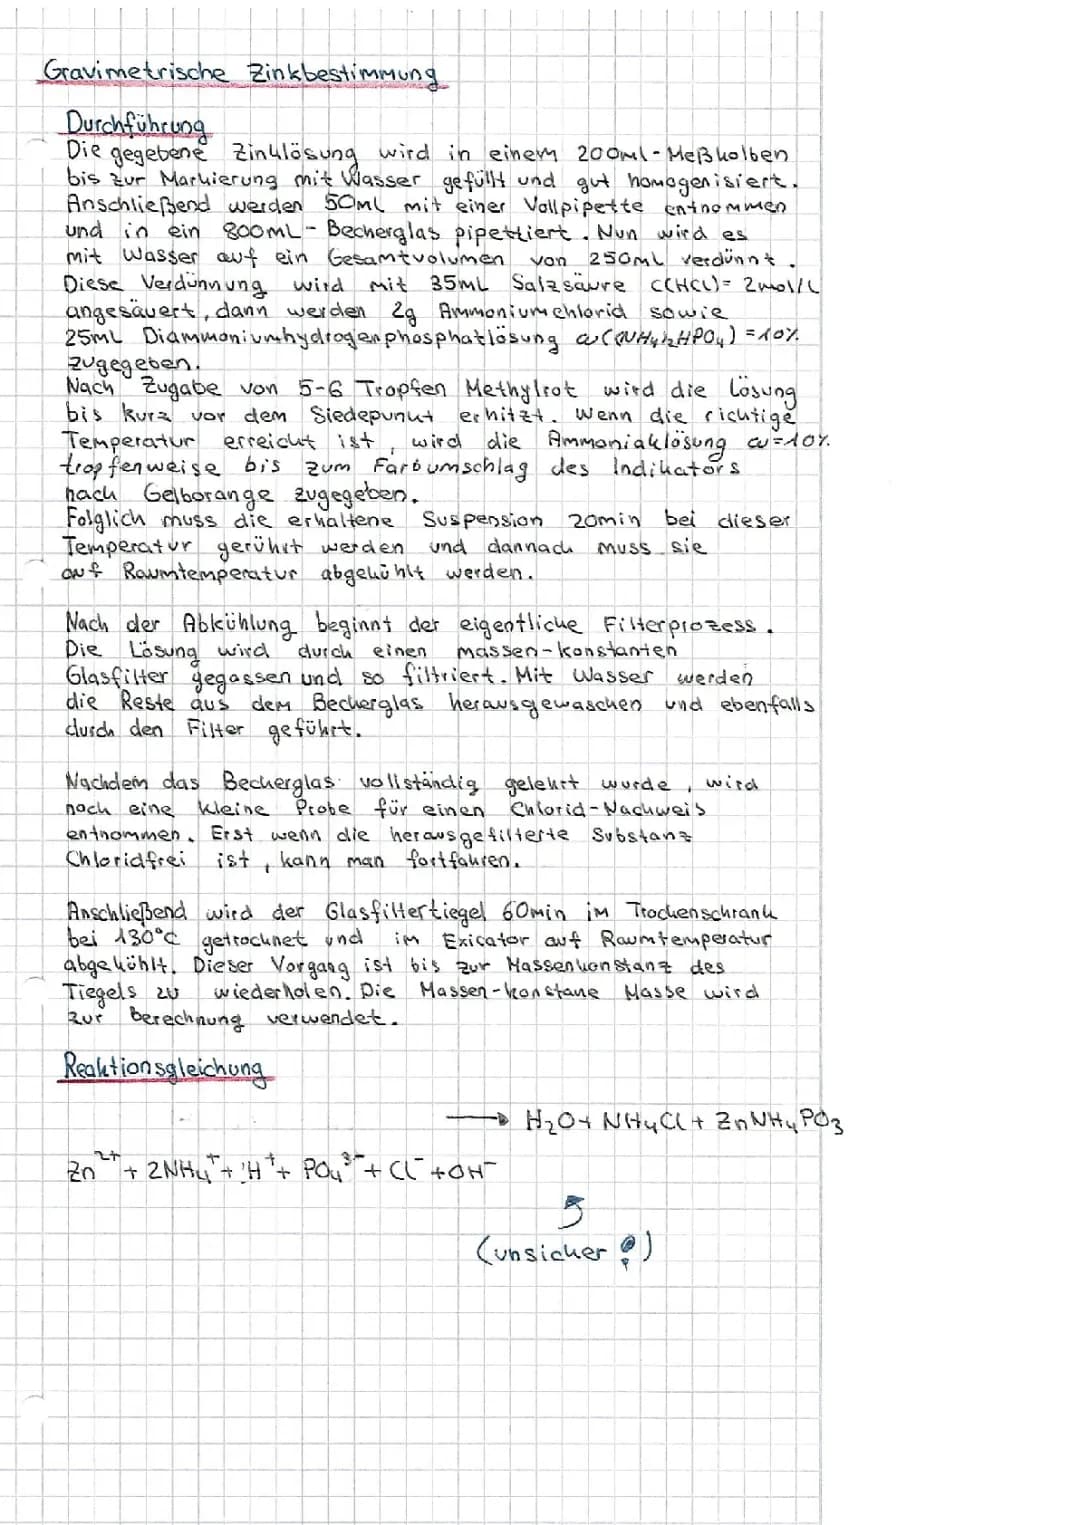 Gravimetrische Zinkbestimmung
Durchführung
Die gegebene Zinklösung wird in einem 200ml-Meßkolben
bis zur Markierung mit Wasser gefüllt und gut homogenisiert.
Anschließend werden 50mL mit einer Vollpipette entnommen
und in ein 800mL-Becherglas pipettiert. Nun wird es
mit Wasser auf ein Gesamtvolumen von 250mL verdünnt.
Diese Verdünnung wird mit 35mL Salzsäure c(HCl)= 2mol/L
angesäuert, dann werden 2g Ammoniumchlorid sowie
25mL Diammoniumhydrogenphosphatlösung ω((NH4)2HPO4)=10%
zugegeben.
Nach Zugabe von 5-6 Tropfen Methylrot wird die Lösung
bis kurz vor dem Siedepunkt erhitzt. Wenn die richtige
Temperatur erreicht ist, wird die Ammoniaklösung ω=10%
tropfenweise bis zum Farbumschlag des Indikators
nach Gelborange zugegeben.
Folglich muss die erhaltene Suspension 20min bei dieser
Temperatur gerührt werden und dannach muss sie
auf Raumtemperatur abgekühlt werden.
Nach der Abkühlung beginnt der eigentliche Filterprozess.
Die Lösung wird durch einen massen-konstanten
Glasfilter gegossen und so filtriert. Mit Wasser werden
die Reste aus dem Becherglas herausgewaschen und ebenfalls
durch den Filter geführt.
Nachdem das Becherglas vollständig gelehrt wurde, wird
noch eine kleine Probe für einen Chlorid-Nachweis
entnommen. Erst wenn die herausgefilterte Substanz
Chloridfrei ist, kann man fortfahren.
Anschließend wird der Glasfiltertiegel 60min im Trockenschrank
bei 130°C getrocknet und im Exicator auf Raumtemperatur
abgekühlt. Dieser Vorgang ist bis zur Massenkonstanz des
Tiegels zu wiederholen. Die Massen-konstane Masse wird
zur Berechnung verwendet.
Reaktionsgleichung
→ H2O+ NH4Cl + ZnNH4PO3
Zn2+ + 2NH4+ + H+ + PO43- + Cl- + OH-
(unsicher ?)